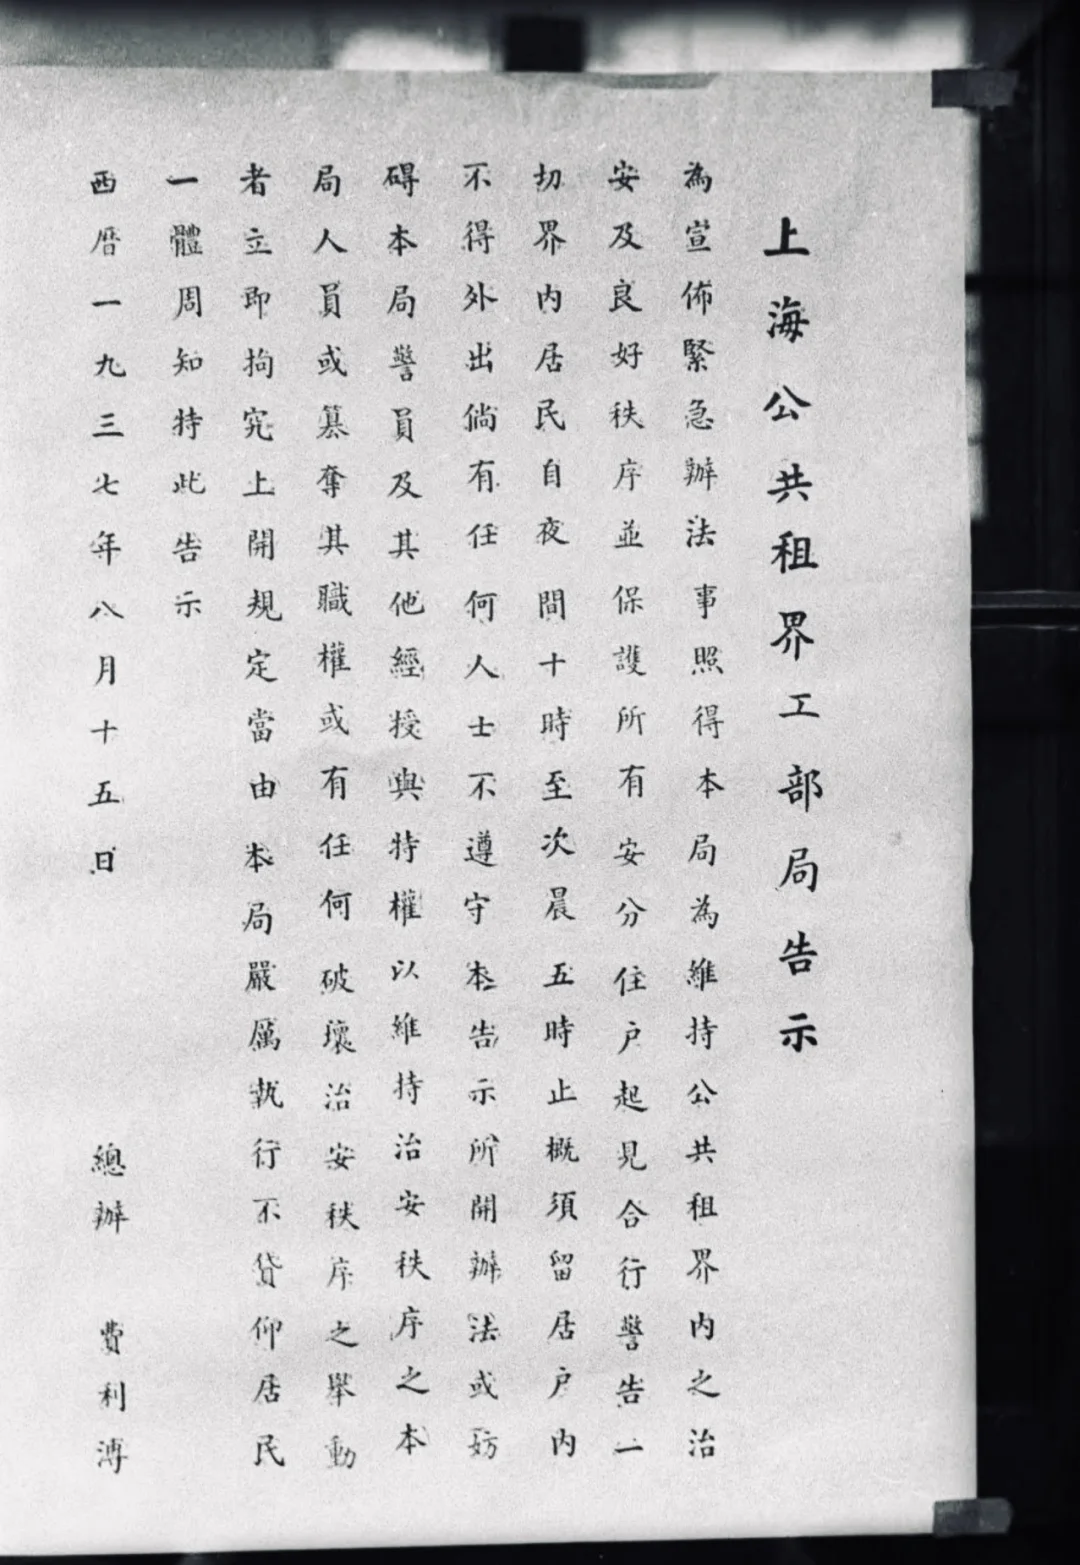 上海公共租界工部局告示
為宣佈緊急辦法事照得本局為維持公共租界內之治
安及良好秩序並保護所有安分住户起見合行警告一
切界內居民自夜間十時至次晨五時止概須留居户內
不得外出倘有任何人士不遵守本告示所開辦法或妨
碍本局警員及其他經授與特權以維持治安秩序之本
局人員或簒奪其職權或有任何破壞治安秩序之舉動
者立即拘究上開規定當由本局嚴厲執行不貸仰居民
一體周知特此告示
西曆一九三七年八月十五日 總辦 費利溥